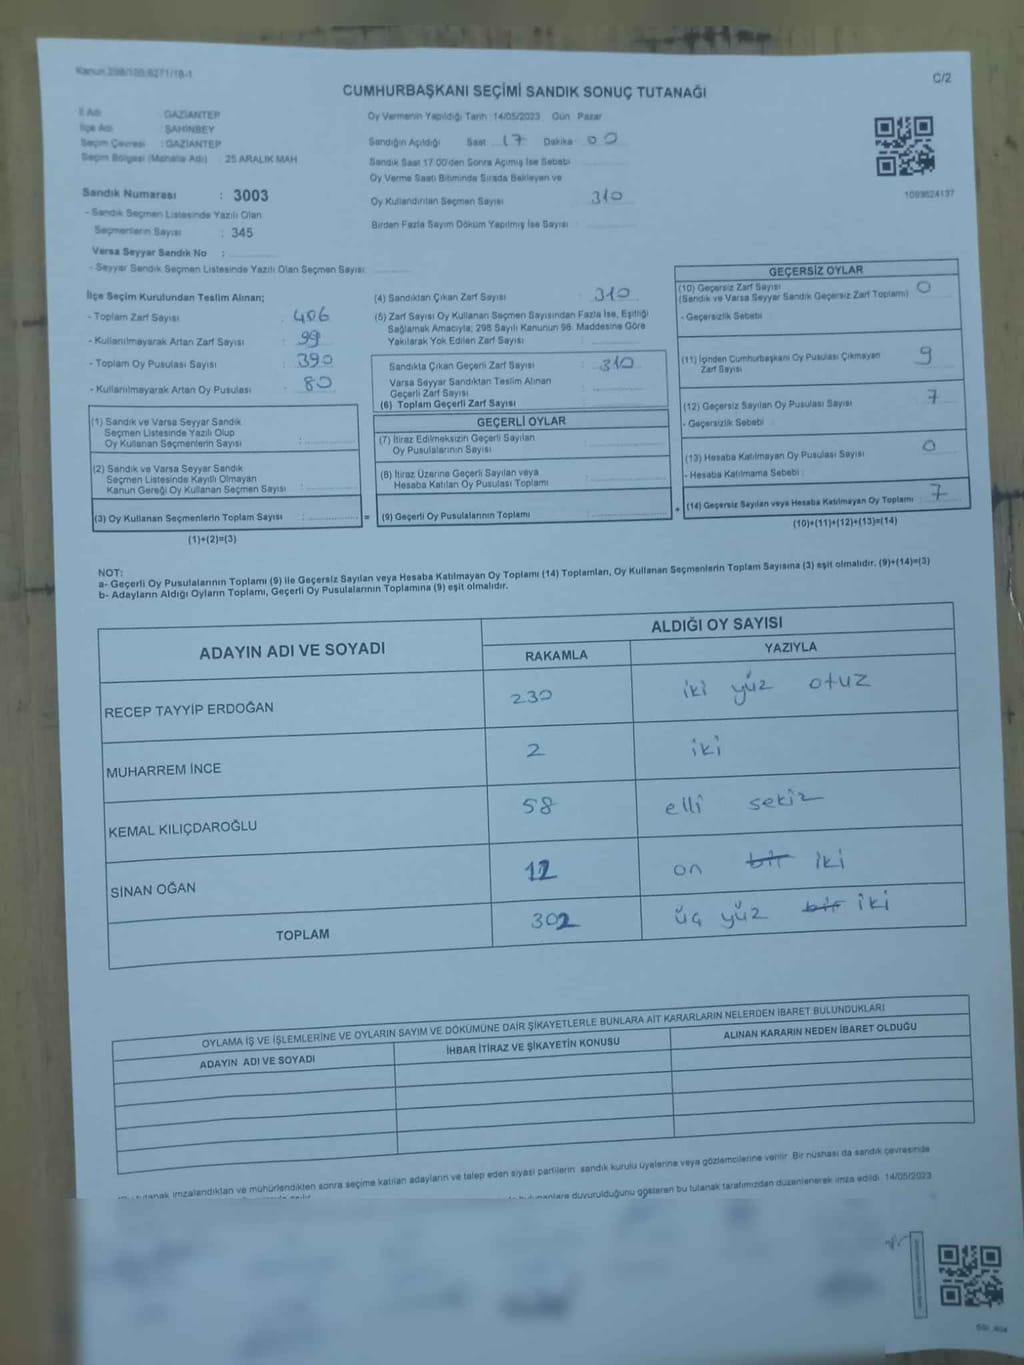 Kanun 298/105;6271/18-1
C/2
CUMHURBAŞKANI SEÇİMİ SANDIK SONUÇ TUTANAĞI
İl Adı : GAZİANTEP
İlçe Adı : ŞAHİNBEY
Seçim Çevresi : GAZİANTEP
Seçim Bölgesi (Mahalle Adı) : 25 ARALIK MAH
Sandık Numarası : 3003
- Sandık Seçmen Listesinde Yazılı Olan
Seçmenlerin Sayısı : 345
Varsa Seyyar Sandık No :
- Seyyar Sandık Seçmen Listesinde Yazılı Olan Seçmen Sayısı:
Oy Vermenin Yapıldığı Tarih 14/05/2023 Gün Pazar
Sandığın Açıldığı Saat 17 Dakika 00
Sandık Saat 17.00'den Sonra Açımış İse Sebebi
Oy Verme Saati Bitiminde Sırada Bekleyen ve
Oy Kullandırılan Seçmen Sayısı 310
Birden Fazla Sayım Döküm Yapılmış İse Sayısı
1093624137
İlçe Seçim Kurulundan Teslim Alınan;
- Toplam Zarf Sayısı : 406
- Kullanılmayarak Artan Zarf Sayısı : 99
- Toplam Oy Pusulası Sayısı : 390
- Kullanılmayarak Artan Oy Pusulası : 80
(1) Sandık ve Varsa Seyyar Sandık
Seçmen Listesinde Yazılı Olup
Oy Kullanan Seçmenlerin Sayısı :
(2) Sandık ve Varsa Seyyar Sandık
Seçmen Listesinde Kayıllı Olmayan
Kanun Gereği Oy Kullanan Seçmen Sayısı :
(3) Oy Kullanan Seçmenlerin Toplam Sayısı :
(1)+(2)=(3)
(4) Sandıktan Çıkan Zarf Sayısı : 310
(5) Zarf Sayısı Oy Kullanan Seçmen Sayısından Fazla İse, Eşitliği
Sağlamak Amacıyla; 298 Sayılı Kanunun 98. Maddesine Göre
Yakılarak Yok Edilen Zarf Sayısı :
Sandıkta Çıkan Geçerli Zarf Sayısı : 310
Varsa Seyyar Sandıktan Teslim Alınan
Geçerli Zarf Sayısı
(6) Toplam Geçerli Zarf Sayısı :
GEÇERLİ OYLAR
(7) İtiraz Edilmeksizin Geçerli Sayılan
Oy Pusulalarının Sayısı :
(8) İtiraz Üzerine Geçerli Sayılan veya
Hesaba Katılan Oy Pusulası Toplamı :
= (9) Geçerli Oy Pusulalarının Toplamı :
GEÇERSİZ OYLAR
(10) Geçersiz Zarf Sayısı 0
(Sandık ve Varsa Seyyar Sandık Geçersiz Zarf Toplamı)
- Geçersizlik Sebebi
(11) İçinden Cumhurbaşkanı Oy Pusulası Çıkmayan 9
Zarf Sayısı
(12) Geçersiz Sayılan Oy Pusulası Sayısı 7
- Geçersizlik Sebebi
(13) Hesaba Katılmayan Oy Pusulası Sayısı 0
- Hesaba Katılmama Sebebi
+ (14) Geçersiz Sayılan veya Hesaba Katılmayan Oy Toplamı 7
(10)+(11)+(12)+(13)=(14)
NOT:
a- Geçerli Oy Pusulalarının Toplamı (9) ile Geçersiz Sayılan veya Hesaba Katılmayan Oy Toplamı (14) Toplamları, Oy Kullanan Seçmenlerin Toplam Sayısına (3) eşit olmalıdır. (9)+(14)=(3)
b- Adayların Aldığı Oyların Toplamı, Geçerli Oy Pusulalarının Toplamına (9) eşit olmalıdır.
ADAYIN ADI VE SOYADI
ALDIĞI OY SAYISI
RAKAMLA YAZIYLA
RECEP TAYYİP ERDOĞAN 230 iki yüz otuz
MUHARREM İNCE 2 iki
KEMAL KILIÇDAROĞLU 58 elli sekiz
SİNAN OĞAN 12 on bir iki
TOPLAM 302 üç yüz bir iki
OYLAMA İŞ VE İŞLEMLERİNE VE OYLARIN SAYIM VE DÖKÜMÜNE DAİR ŞİKAYETLERLE BUNLARA AİT KARARLARIN NELERDEN İBARET BULUNDUKLARI
ADAYIN ADI VE SOYADI İHBAR İTİRAZ VE ŞİKAYETİN KONUSU ALINAN KARARIN NEDEN İBARET OLDUĞU
tutanak imzalandıktan ve mühürlendikten sonra seçime katılan adayların ve talep eden siyasi partilerin sandık kurulu üyelerine veya gözlemcilerine verilir. Bir nüshası da sandık çevresinde
duyurulduğunu gösteren bu tutanak tarafımızdan düzenlenerek imza edildi. 14/05/2023